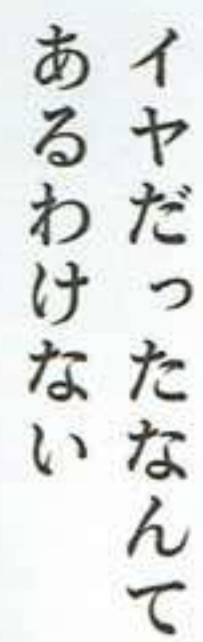 イヤだったなんて
あるわけない